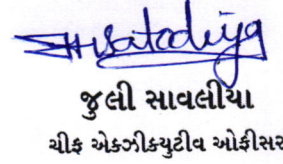 જુલી સાવલીયા
ચીફ એક્ઝીક્યુટીવ ઓફીસર